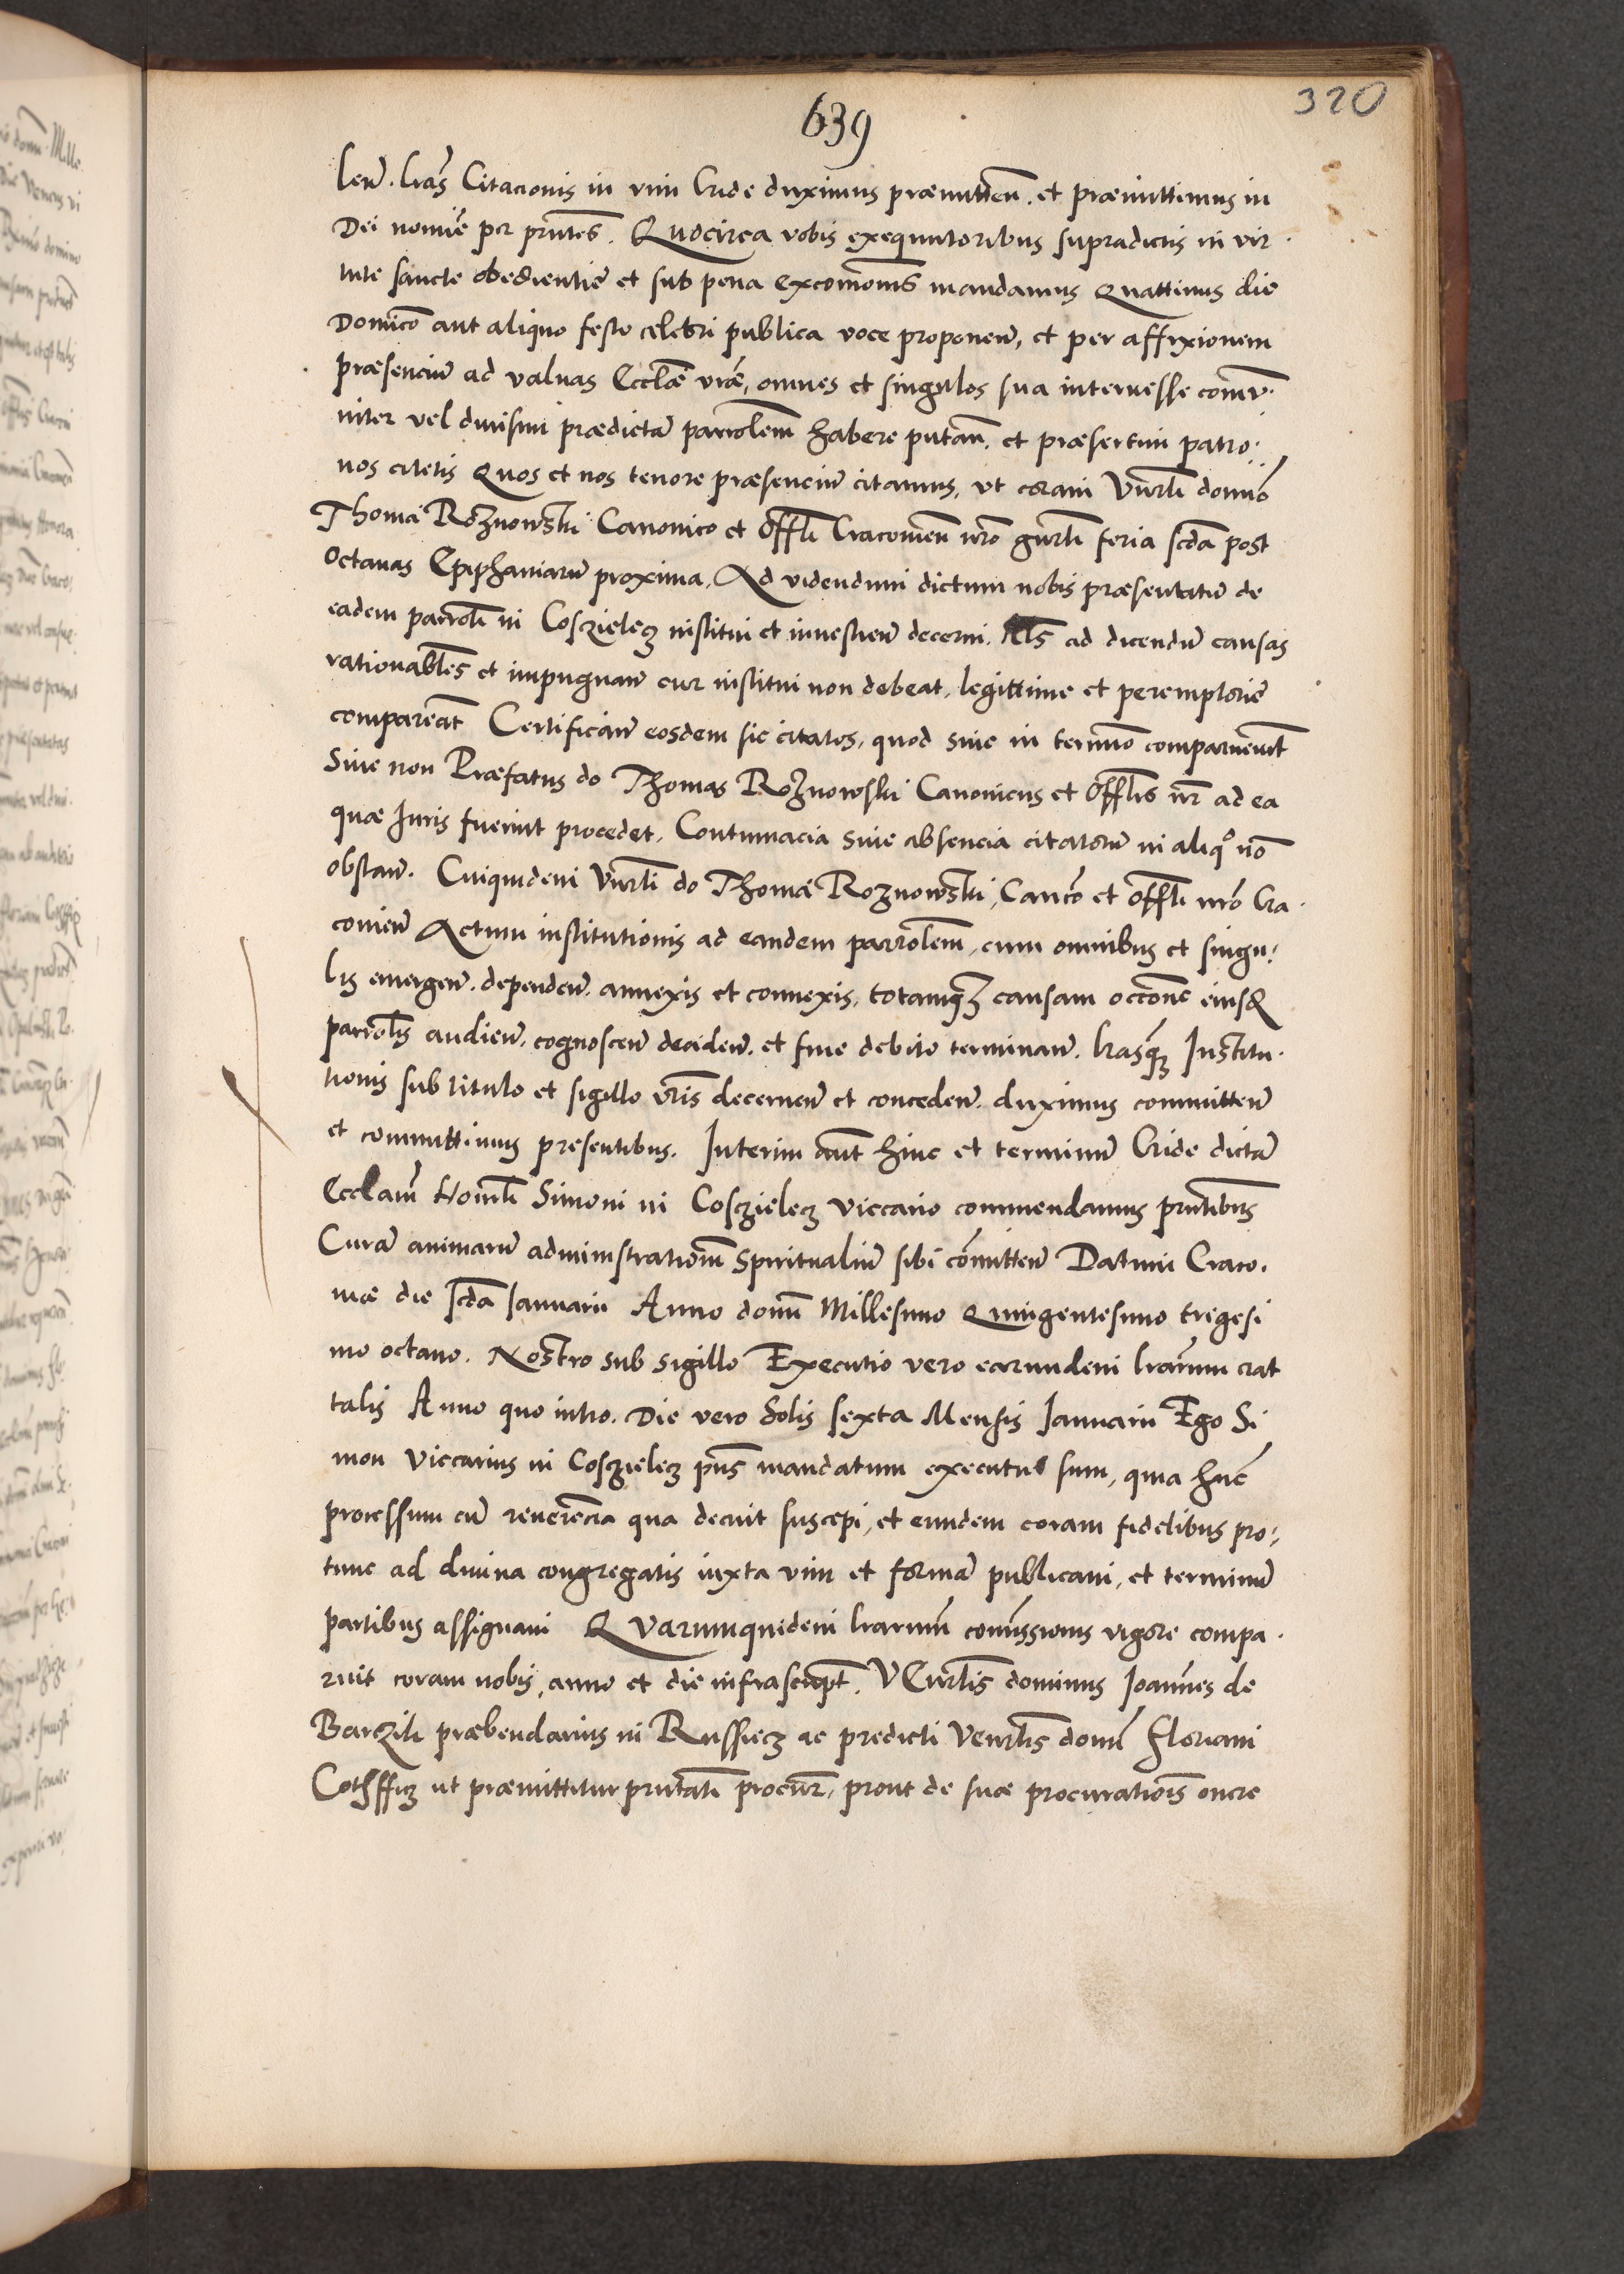 639
320
leñ. lrãs Citacionis in vim Cride duximus præmitteñ. et præmittimus in
Dei nomiẽ per pñtes. Quocirca vobis exequutoribus supradictis in vir
tute sancte obedientiẽ et sub pena excõmonis mandamus Quattinus die
Domico aut aliquo festo celebri publica voce proponeñ, et per affixionem
præsenciũ ad valuas Ecclæ vræ, omnes et singulos sua interesse comu
niter vel diuisim prædictã parrolem habere putañ. et præsertim patro
nos citetis Quos et nos tenore præsenciũ citamus, vt coram Vñrli domiõ
Thomã Roznowski Canonico et Offli Cracouieñ nro gnrli feria scda post
Octauas Epiphaniarũ proxima, Ad videndum dictum nobis præsentatũ de
eadem parroli in Cosczielecz institui et inuestieñ decerni. Als ad dicendũ causas
rationables et impugnañ cur institui non debeat, legittime et peremptoriẽ
compareãt Certificañ eosdem sic citatos, quod siue in termiõ comparuerint
Siue non Præfatus do Thomas Roznowski Canonicus et Offlis nr ad ea
quæ Iuris fuerint procedet, Contumacia siue absencia citatorũ in aliqo nõ
obstañ. Cuiquidem Vñrli do Thomã Roznowski, Canco et offli nro Cra
couieñ Actum institutionis ad eandem parrolem, cum omnibus et singu
lis emergeñ. dependeñ. annexis et connexis, totamqz causam occone eiusq
parrolis audieñ, cognosceñ decideñ. et fine debito terminañ. lrasqz Institu
tionis sub titulo et sigillo vris decerneñ et concedeñ. duximus committeñ
et committimus presentibus. Interim aut hinc et terminũ Cride dictã
Ecclam Honrli Simoni in Cosczielecz Viccario commendamus pñtibus
Curã animarũ administrationem Spiritualiũ sibi cõmitteñ Datum Craco
uiæ die scda Ianuarii Anno domi Millesimo Quingentesimo trigesi
mo octauo. Nostro sub sigillo Executio vero earundem lrarum erat
talis Anno quo intro. Die vero Solis sexta Mensis Ianuarii Ego Si
mon Viccarius in Cosczielecz pñs mandatum executus sum, quia hũc
processum cũ reuerẽcia qua decuit suscepi, et eundem coram fidelibus pro
tunc ad diuina congregatis iuxta vim et formã publicaui, et terminũ
partibus assignaui Quarumquidem lrarum comissionis vigore compa
ruit coram nobis, anno et die infrascript. Venrlis dominus Ioannes de
Barczili præbendarius in Russiecz ac predicti Venrlis domi Floriani
Cothfficz ut præmittitur pñtati procur, prout de suæ procurationis onere